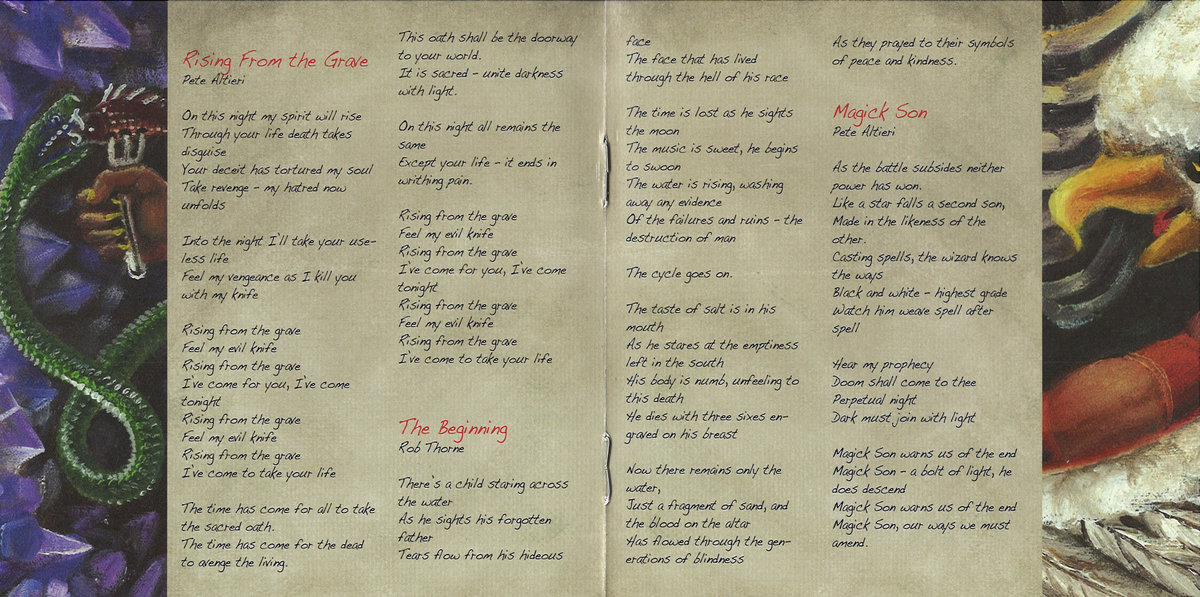 Rising From the Grave
Pete Altieri
On this night my spirit will rise
Through your life death takes
disguise
Your deceit has tortured my soul
Take revenge - my hatred now
unfolds
Into the night I'll take your use-
less life
Feel my vengeance as I kill you
with my knife
Rising from the grave
Feel my evil knife
Rising from the grave
I've come for you, I've come
tonight
Rising from the grave
Feel my evil knife
Rising from the grave
I've come to take your life
The time has come for all to take
the sacred oath.
The time has come for the dead
to avenge the living.
This oath shall be the doorway
to your world.
It is sacred - unite darkness
with light.
On this night all remains the
same
Except your life - it ends in
writhing pain.
Rising from the grave
Feel my evil knife
Rising from the grave
I've come for you, I've come
tonight
Rising from the grave
Feel my evil knife
Rising from the grave
I've come to take your life
The Beginning
Rob Thorne
There's a child staring across
the water
As he sights his forgotten
father
Tears flow from his hideous
face
The face that has lived
through the hell of his race
The time is lost as he sights
the moon
The music is sweet, he begins
to swoon
The water is rising, washing
away any evidence
Of the failures and ruins - the
destruction of man
The cycle goes on.
The taste of salt is in his
mouth
As he stares at the emptiness
left in the south
His body is numb, unfeeling to
this death
He dies with three sixes en-
graved on his breast
Now there remains only the
water,
Just a fragment of sand, and
the blood on the altar
Has flowed through the gen-
erations of blindness
As they prayed to their symbols
of peace and kindness.
Magick Son
Pete Altieri
As the battle subsides neither
power has won.
Like a star falls a second son,
Made in the likeness of the
other.
Casting spells, the wizard knows
the ways
Black and white - highest grade
Watch him weave spell after
spell
Hear my prophecy
Doom shall come to thee
Perpetual night
Dark must join with light
Magick Son warns us of the end
Magick Son - a bolt of light, he
does descend
Magick Son warns us of the end
Magick Son, our ways we must
amend.